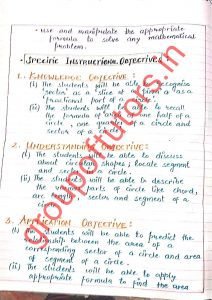 • Use and manipulate the appropriate
formula to solve any mathematical
problem.
• SPECIFIC INSTRUCTIONAL OBJECTIVES
1. KNOWLEDGE OBJECTIVE:
(i) The students will be able to recognize
sector as a slice it forms as a
fractional part of a
(ii) The students will be able to recall
the formula of area of one half of a
circle, one quarter of a circle and
sector of a
2. UNDERSTANDING OBJECTIVE:
(i) The students will be able to discuss
about shapes; locate segment
and sector of a circle.
(ii) The students will be able to describe
the parts of circle like chord,
arc sector and segment of a
3. APPLICATION OBJECTIVE:
(i) The students will be able to predict the
relationship between the area of a
corresponding sector of a circle and area
of segment of a circle.
(ii) The students will be able to apply
appropriate formula to find the area
groupoftutors.in